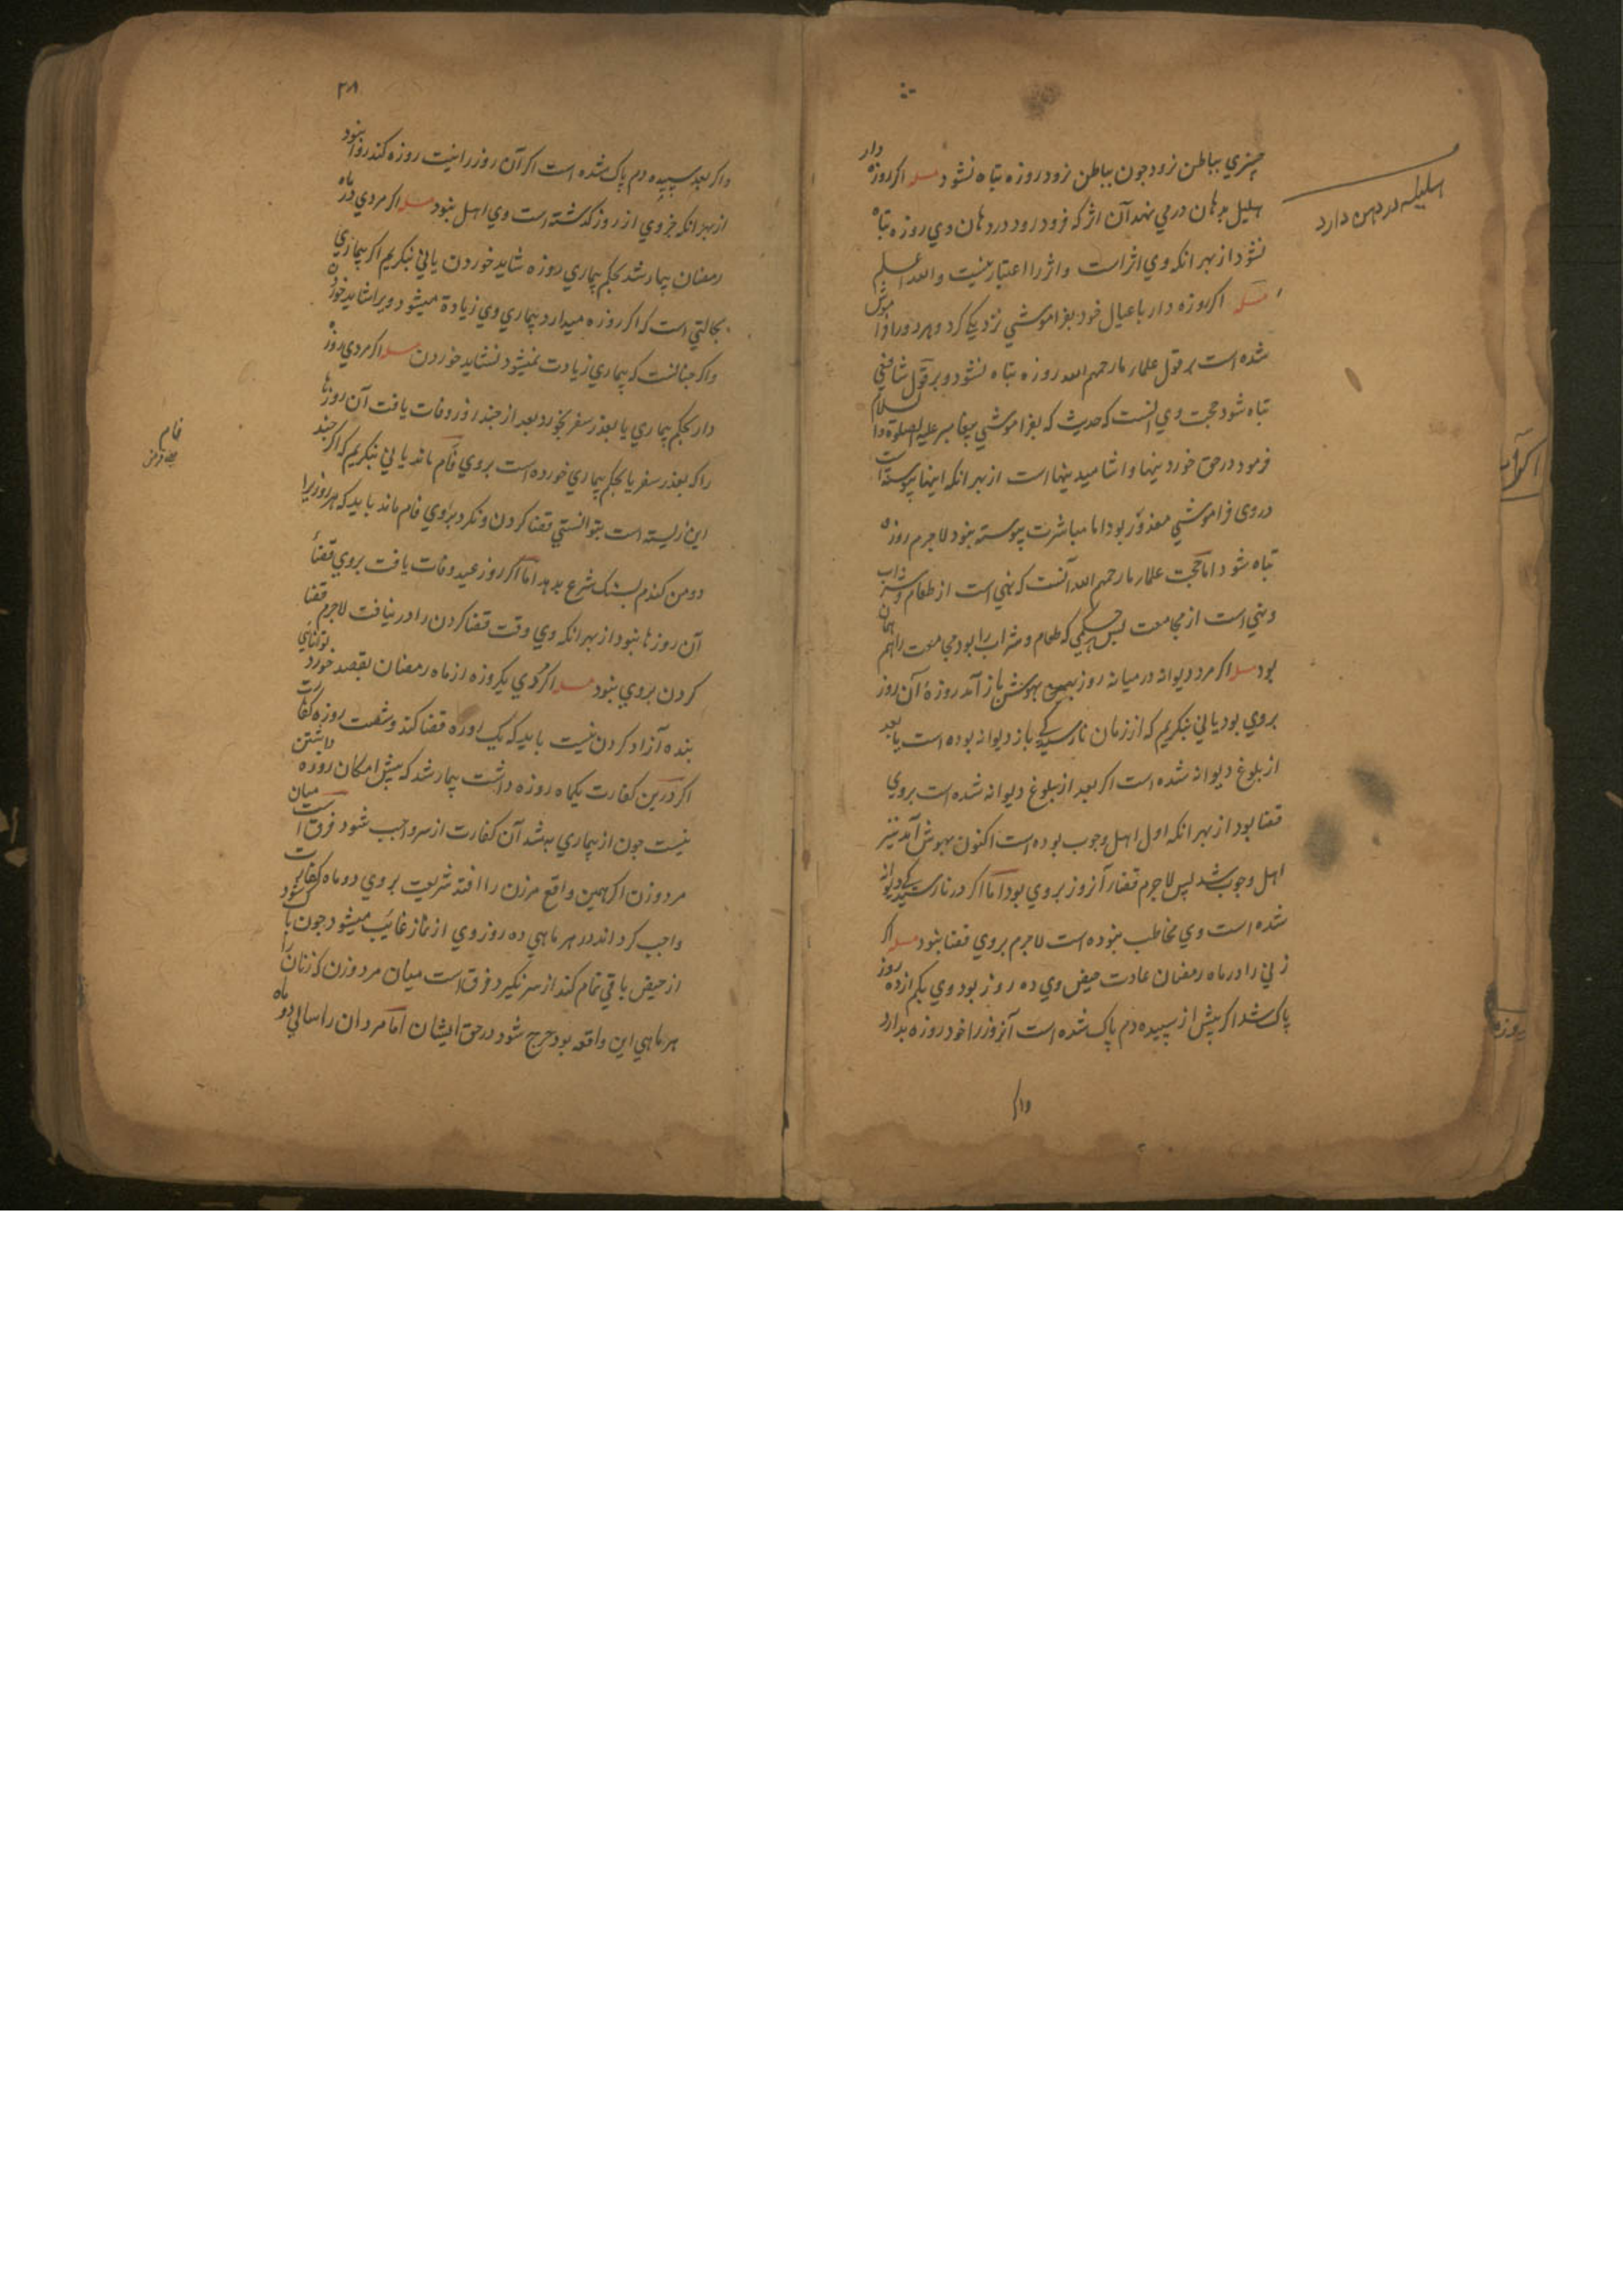 چیزی بباطن نرود جون بباطن نرود روزه تباه نشود مسله اکر روزه دار
هلیل بدهان درمی نهد آن اثر که فرود رود در دهان وی روزه تباه
نشود از بهر انکه وی اثر است واثر را اعتبار نیست والله اعلم
مسله اکر روزه دار با عیال خود بفراموشی نزدیکی کرد وهر دو را فراموش
شده است بر قول علماء ما رحمهم الله روزه تباه نشود وبر قول شافعی
تباه شود حجت وی انست که حدیث که بفراموشی پیغامبر علیه الصلوة والسلام
فرمود در حق خوردینها واشامیدینها است از بهر انکه اینها پیوسته است
دروی فراموشی معذور بود اما مباشرت پیوسته نبود لاجرم روزه
تباه شود اما حجت علماء ما رحمهم الله آنست که نهی است از طعام وشراب
ونهی است از مجامعت پس حکمی که طعام وشراب را بود مجامعت را هم همان
بود مسله اکر مرد دیوانه در میانه روز بهوش باز آمد روزهٔ آن روز
بروی بود یا نی بنکریم که از زمان نارسیدکی باز دیوانه بوده است یا بعد
از بلوغ دیوانه شده است اکر بعد از بلوغ دیوانه شده است بروی
قضا بود از بهر انکه اول اهل وجوب بوده است اکنون بهوش آمد نیز
اهل وجوب شد پس لاجرم قضاء آنروز بروی بود اما اکر در نارسیدکی دیوانه
شده است وی مخاطب نبوده است لاجرم بروی قضا نبود مسله اکر
زنی را در ماه رمضان عادت حیض وی ده روز بود وی بکم از ده روز
پاک شد اکر پیش از سپیده دم پاک شده است آنروز را خود روزه بدارد
واکر
هلیله در دهن دارد
۳۸
واکر بعد سپیده دم پاک شده است اکر آن روز را نیت روزه کند روا نبود
از بهر انکه جزوی از روز کذشته است وی اهل نبود مسله اکر مردی در ماه
رمضان بیمار شد بحکم بیماری روزه شاید خوردن یا نی بنکریم اکر بیماری
بحالتی است که اکر روزه میدارد بیماری وی زیادة میشود ویرا شاید خوردن
واکر جنانست که بیماری زیادت نمیشود نشاید خوردن مسله اکر مردی روزه
دار بحکم بیماری یا بعذر سفر بخورد بعد از جند روز وفات یافت آن روزها
را که بعذر سفر یا بحکم بیماری خورده است بروی فام ماند یا نی بنکریم که اکر جند
این زیسته است بتوانستی قضا کردن ونکرد بروی فام ماند باید که هر روزیرا
دومن کندم بسنک شرع بدهد اما اکر روز عید وفات یافت بروی قضاء
آن روزها نبود از بهر انکه وی وقت قضا کردن را در نیافت لاجرم قضا
کردن بروی نبود مسله اکر مردی یکروزه از ماه رمضان بقصد خورد توانای
بنده آزاد کردن نیست باید که یک روزه قضا کند وشصت روزه کفارت
اکر درین کفارت یکماه روزه داشت بیمار شد که بیش امکان روزه داشتن
نیست جون از بیماری به شد آن کفارت از سر واجب شود فرق است میان
مرد وزن اکر همین واقع مرزن را افتد شریعت بروی دو ماه کفارت
واجب کرداند در هر ماهی ده روز وی از نماز غائب میشود جون پاک شود
از حیض باقی تمام کند از سر نکیرد فرق است میان مرد وزن که زنان را
هر ماهی این واقعه بود حرج شود در حق ایشان اما مردان را سالی دو ماه
فام